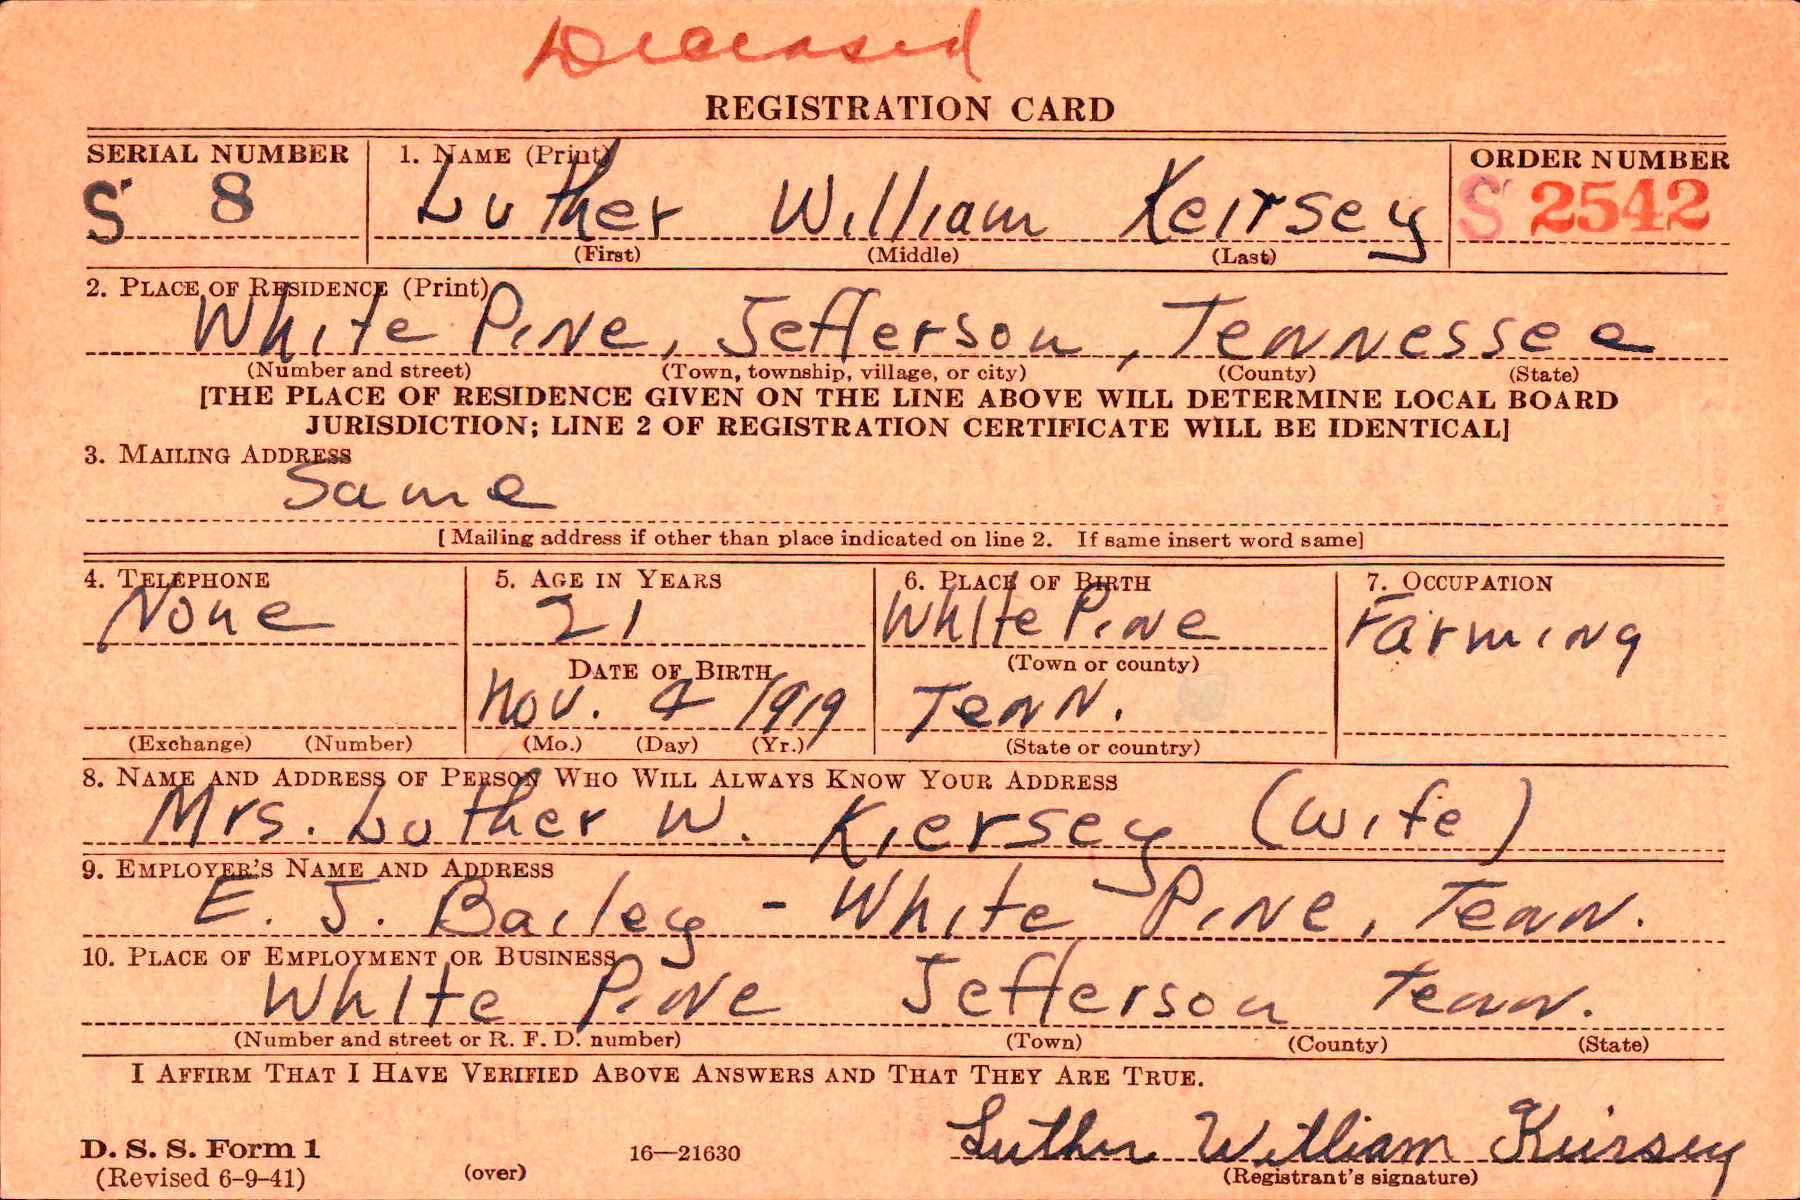 Deceased
REGISTRATION CARD
SERIAL NUMBER 1. NAME (Print) ORDER NUMBER
S 8 Luther William Keirsey S 2542
(First) (Middle) (Last)
2. PLACE OF RESIDENCE (Print)
White Pine, Jefferson, Tennessee
(Number and street) (Town, township, village, or city) (County) (State)
[THE PLACE OF RESIDENCE GIVEN ON THE LINE ABOVE WILL DETERMINE LOCAL BOARD
JURISDICTION; LINE 2 OF REGISTRATION CERTIFICATE WILL BE IDENTICAL]
3. MAILING ADDRESS
Same
[Mailing address if other than place indicated on line 2. If same insert word same]
4. TELEPHONE 5. AGE IN YEARS 6. PLACE OF BIRTH 7. OCCUPATION
None 21 White Pine Farming
DATE OF BIRTH (Town or county)
Nov. 4 1919 Tenn.
(Exchange) (Number) (Mo.) (Day) (Yr.) (State or country)
8. NAME AND ADDRESS OF PERSON WHO WILL ALWAYS KNOW YOUR ADDRESS
Mrs. Luther W. Kiersey (wife)
9. EMPLOYER'S NAME AND ADDRESS
E. J. Bailey - White Pine, Tenn.
10. PLACE OF EMPLOYMENT OR BUSINESS
White Pine Jefferson Tenn.
(Number and street or R. F. D. number) (Town) (County) (State)
I AFFIRM THAT I HAVE VERIFIED ABOVE ANSWERS AND THAT THEY ARE TRUE.
Luther William Keirsey
D. S. S. Form 1 16—21630
(Revised 6-9-41) (over) (Registrant's signature)